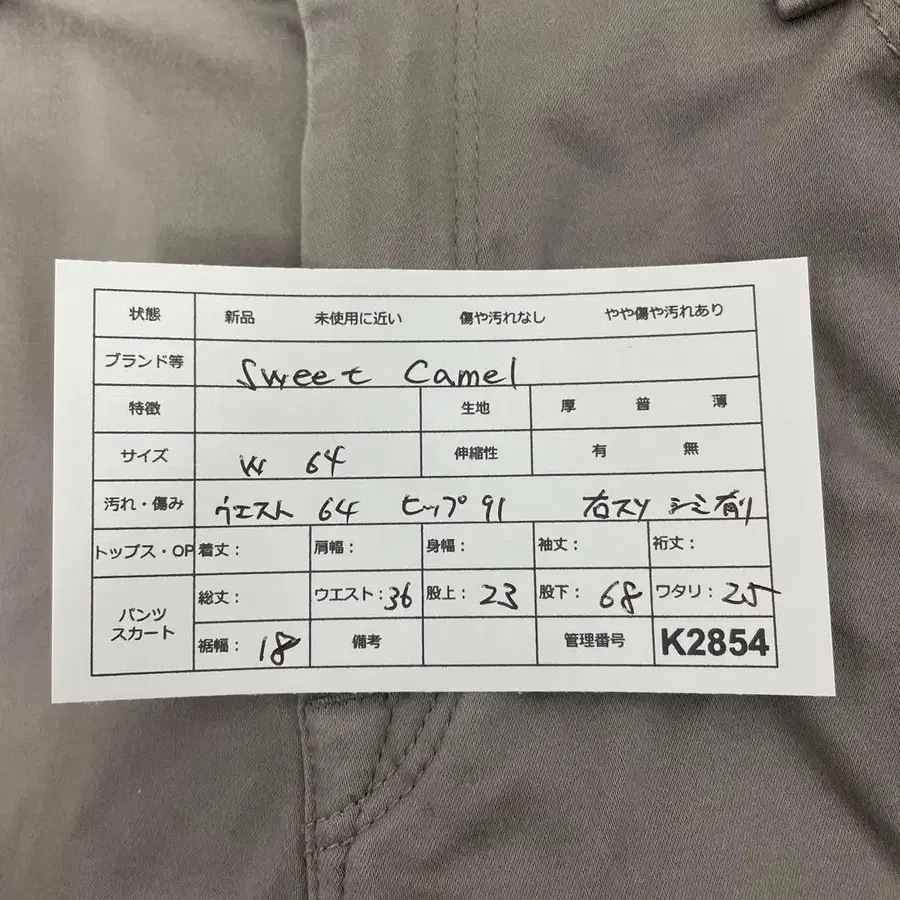 状態 新品 未使用に近い 傷や汚れなし やや傷や汚れあり
ブランド等 Sweet Camel
特徴 生地 厚 普 薄
サイズ W 64 伸縮性 有 無
汚れ・傷み ウエスト 64 ヒップ 91 右スソ シミ有り
トップス・OP 着丈： 肩幅： 身幅： 袖丈： 裄丈：
パンツ スカート 総丈： ウエスト：36 股上：23 股下：68 ワタリ：25
裾幅：18 備考 管理番号 K2854